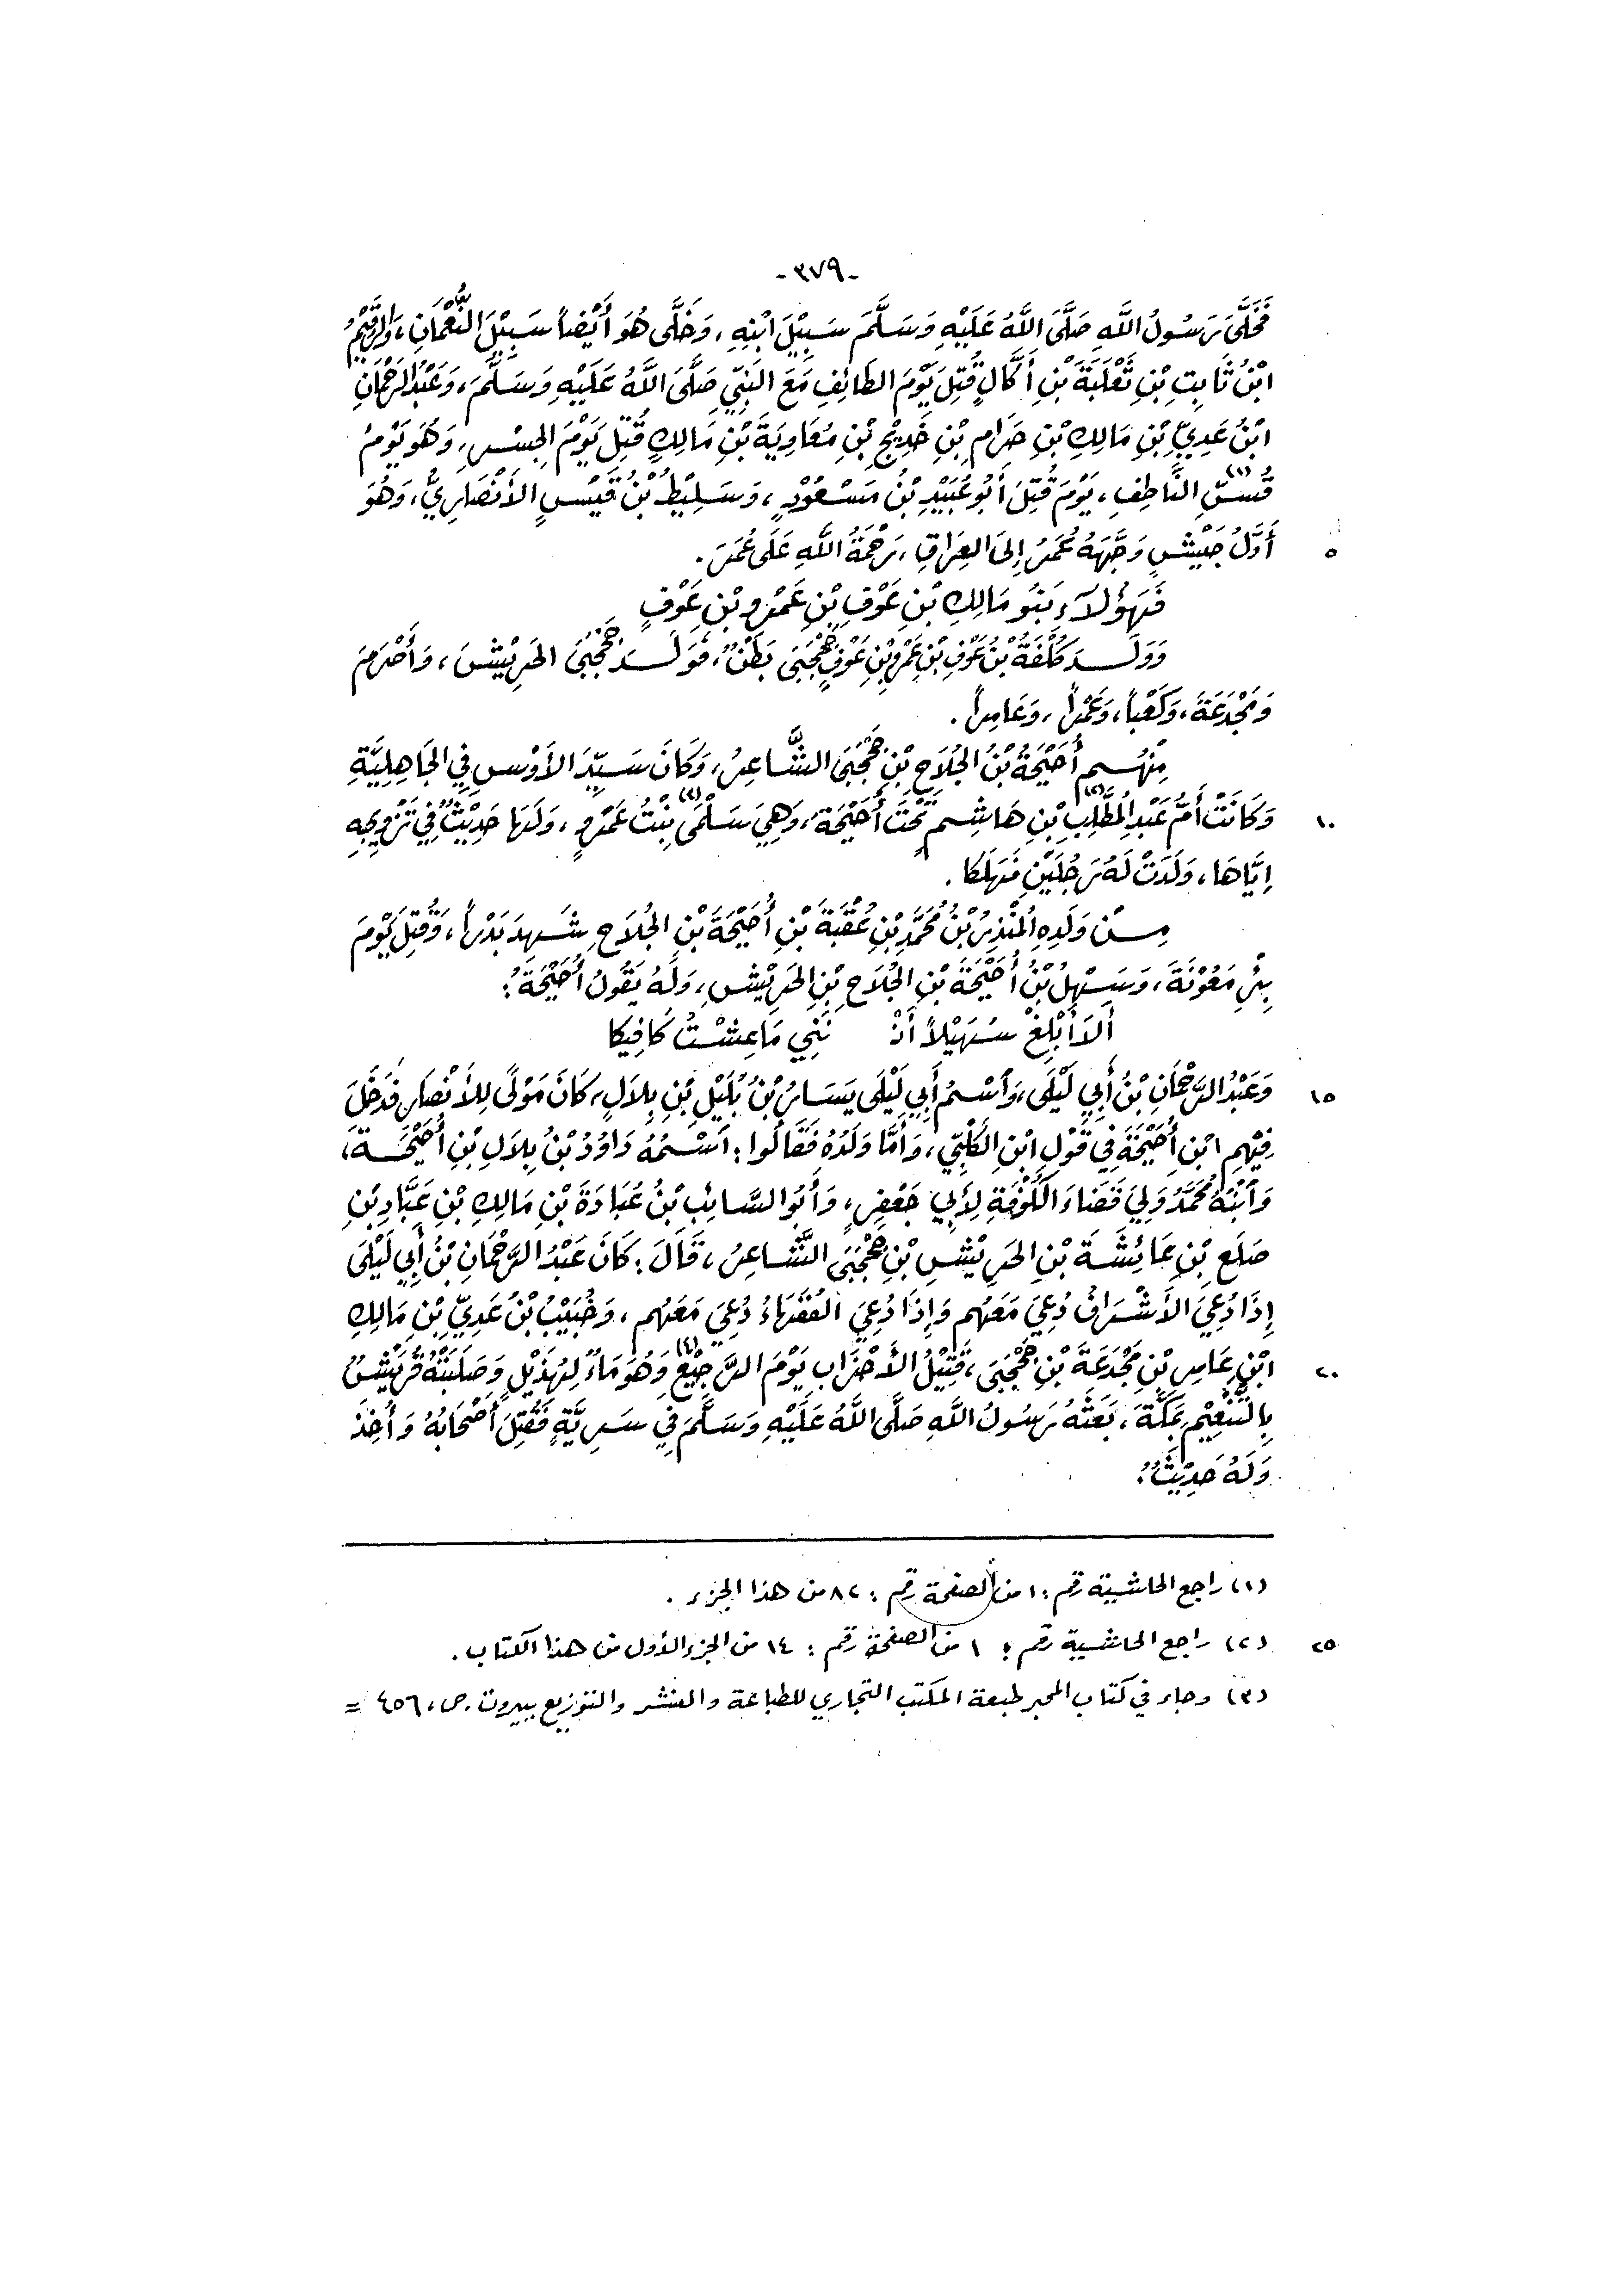 -٣٧٩-
فَخَلَّى رَسُولُ اللَّهِ صَلَّى اللَّهُ عَلَيْهِ وَسَلَّمَ سَبِيْلَ ابْنِهِ، وَخَلَّى هُوَ أَيْضاً سَبِيْلَ النُّعْمَانِ، وَالرُّقَيْمُ
ابْنُ ثَابِتِ بْنِ ثَعْلَبَةَ بْنِ أَكَّالٍ قُتِلَ يَوْمَ الطَائِفِ مَعَ النَبِيِّ صَلَّى اللَّهُ عَلَيْهِ وَسَلَّمَ، وَعَبْدُ الرَحْمَانِ
ابْنُ عَدِيِّ بْنِ مَالِكِ بْنِ حَرَامِ بْنِ خَدِيْجِ بْنِ مُعَاوِيَةَ بْنِ مَالِكٍ قُتِلَ يَوْمَ الجِسْرِ، وَهُوَ يَوْمُ
قُسِّ(١) النَّاطِفِ، يَوْمَ قُتِلَ أَبُو عُبَيْدِ بْنُ مَسْعُوْدٍ، وَسَلِيْطُ بْنُ قَيْسٍ الأَنْصَارِيُّ، وَهُوَ
٥ أَوَّلُ جَيْشٍ وَجَّهَهُ عُمَرُ إِلَى العِرَاقِ، رَحْمَةُ اللَّهِ عَلَى عُمَرَ.
فَهَؤُلَآءِ بَنُو مَالِكِ بْنِ عَوْفِ بْنِ عَمْرِو بْنِ عَوْفٍ
وَوَلَدَ كُلْفَةُ بْنُ عَوْفِ بْنِ عَمْرِو بْنِ عَوْفٍ جَحْجَبَى بَطْنٌ، فَوَلَدَ جَحْجَبَى الحَرِيْشَ، وَأَصْرَمَ
وَمَجْدَعَةَ، وَكَعْباً، وَعَمْراً، وَعَامِراً.
مِنْهُم أُحَيْحَةُ بْنُ الجُلَاحِ بْنِ جَحْجَبَى الشَّاعِرُ، وَكَانَ سَيِّدَ الأَوْسِ فِي الجَاهِلِيَّةِ
١٠ وَكَانَتْ أُمُّ عَبْدِ المُطَّلِبِ(٢) بْنِ هَاشِمٍ تَحْتَ أُحَيْحَةَ، وَهِيَ سَلْمَى(٣) بِنْتُ عَمْرٍو، وَلَهَا حَدِيْثٌ فِي تَزْوِيجِهِ
إِيَّاهَا، وَلَدَتْ لَهُ رَجُلَيْنِ فَهَلَكَا.
مِنْ وَلَدِهِ المُنْذِرُ بْنُ مُحَمَّدِ بْنِ عُقْبَةَ بْنِ أُحَيْحَةَ بْنِ الجُلَاحِ شَهِدَ بَدْراً، وَقُتِلَ يَوْمَ
بِئْرِ مَعُوْنَةَ، وَسَهْلُ بْنُ أُحَيْحَةَ بْنِ الجُلَاحِ بْنِ الحَرِيْشِ، وَلَهُ يَقُولُ أُحَيْحَةُ:
أَلَا أَبْلِغْ سُهَيْلاً أَنْ نَنِي مَا عِشْتُ كَافِيكَا
١٥ وَعَبْدُ الرَّحْمَانِ بْنُ أَبِي لَيْلَى، وَاسْمُ أَبِي لَيْلَى يَسَارُ بْنُ بُلَيْلِ بْنِ بِلَالٍ، كَانَ مَوْلًى لِلأَنْصَارِ فَدَخَلَ
فِيْهِمِ ابْنِ أُحَيْحَةَ فِي قَوْلِ ابْنِ الكَلْبِيِّ، وَأَمَّا وَلَدُهُ فَقَالُوا: اسْمُهُ دَاوُدُ بْنُ بِلَالِ بْنِ أُحَيْحَةَ،
وَابْنُهُ مُحَمَّدٌ وَلِيَ قَضَاءَ الكُوْفَةِ لِأَبِي جَعْفَرٍ، وَأَبُو السَّائِبِ بْنُ عُبَادَةَ بْنِ مَالِكِ بْنِ عَبَّادِ بْنِ
صَلَعِ بْنِ عَائِشَةَ بْنِ الحَرِيْشِ بْنِ جَحْجَبَى الشَّاعِرُ، قَالَ: كَانَ عَبْدُ الرَّحْمَانِ بْنُ أَبِي لَيْلَى
إِذَا دُعِيَ الأَشْرَافُ دُعِيَ مَعَهُم وَإِذَا دُعِيَ الفُقَهَاءُ دُعِيَ مَعَهُم، وَخُبَيْبُ بْنُ عَدِيِّ بْنِ مَالِكِ
٢٠ ابْنِ عَامِرِ بْنِ مَجْدَعَةَ بْنِ جَحْجَبَى، قَتِيْلُ الأَحْزَابِ يَوْمَ الرَّجِيْعِ(٤) وَهُوَ مَاءٌ لِهُذَيْلٍ وَصَلَبَتْهُ قُرَيْشٌ
بِالتَّنْعِيْمِ بِمَكَّةَ، بَعَثَهُ رَسُولُ اللَّهِ صَلَّى اللَّهُ عَلَيْهِ وَسَلَّمَ فِي سَرِيَّةٍ فَقُتِلَ أَصْحَابُهُ وَأُخِذَ
وَلَهُ حَدِيْثٌ.
(١) راجع الحاشية رقم: ١ من الصفحة رقم: ٨٢ من هذا الجزء.
٢٥ (٢) راجع الحاشية رقم: ١ من الصفحة رقم: ١٤ من الجزء الأول من هذا الكتاب.
(٣) وجاء في كتاب المحبر طبعة المكتب التجاري للطباعة والنشر والتوزيع ببيروت. ص، ٤٥٦ =